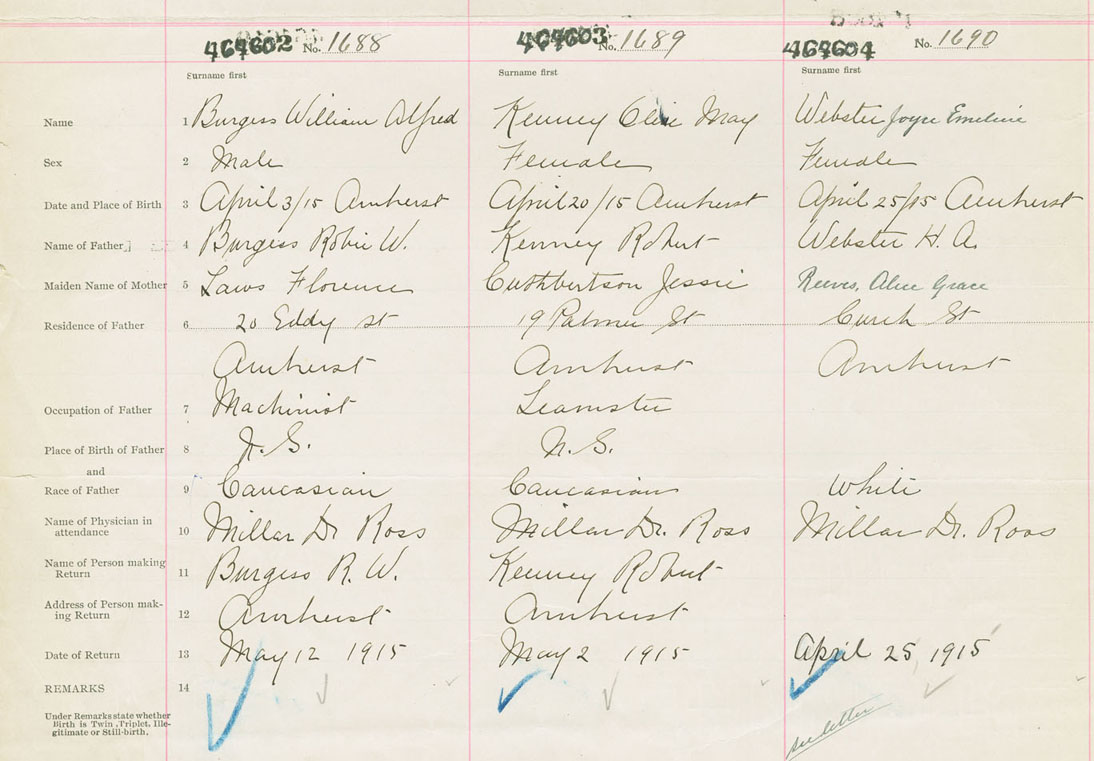 464602 No. 1688 464603 No. 1689 464604 No. 1690
Surname first Surname first Surname first
Name 1 Burgess William Alfred Kenney Olive May Webster Joyce Emeline
Sex 2 Male Female Female
Date and Place of Birth 3 April 3/15 Amherst April 20/15 Amherst April 25/15 Amherst
Name of Father 4 Burgess Robie W. Kenney Robert Webster H. A.
Maiden Name of Mother 5 Laws Florence Cuthbertson Jessie Reeves, Alice Grace
Residence of Father 6 20 Eddy st 19 Palmer St St
Amherst Amherst Amherst
Occupation of Father 7 Machinist Teamster
Place of Birth of Father 8 N.S. N.S.
and
Race of Father 9 Caucasian Caucasian White
Name of Physician in
attendance 10 Millar Dr Ross Millar Dr. Ross Millar Dr. Ross
Name of Person making
Return 11 Burgess R. W. Kenney Robert
Address of Person mak-
ing Return 12 Amherst Amherst
Date of Return 13 May 12 1915 May 2 1915 April 25, 1915
REMARKS 14
Under Remarks state whether
Birth is Twin, Triplet, Ille-
gitimate or Still-birth.
see letter